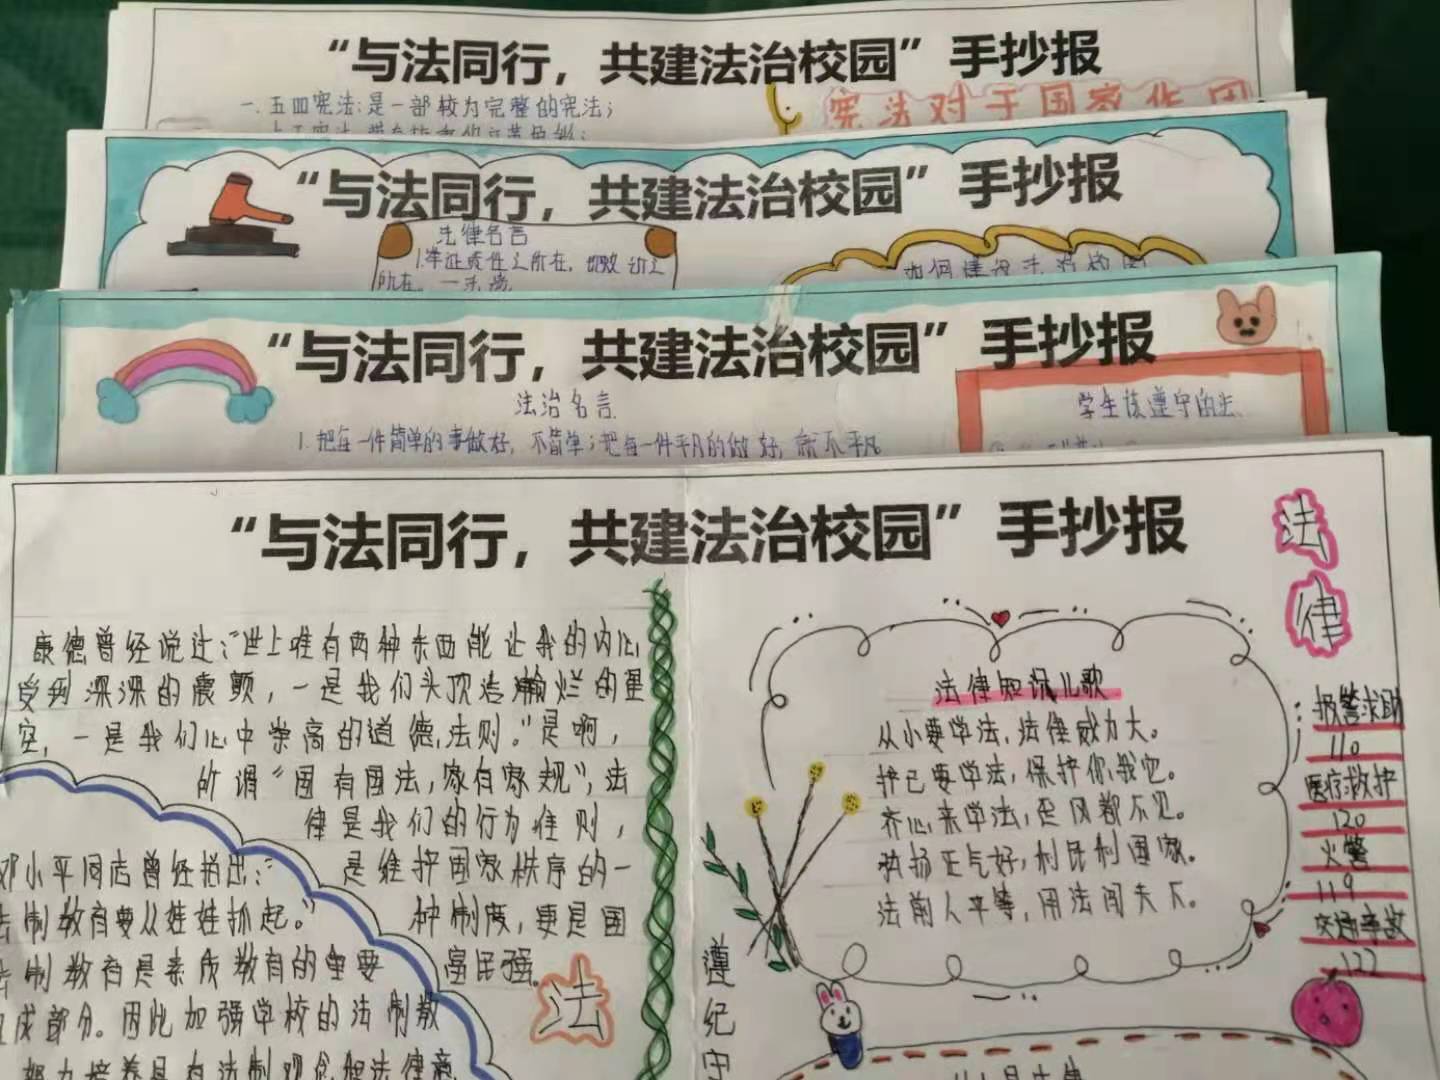 “与法同行，共建法治校园”手抄报
一.五四宪法:是一部较为完整的宪法；
宪法对于国家作用
“与法同行，共建法治校园”手抄报
法律名言
如何建设法治校园
“与法同行，共建法治校园”手抄报
法治名言
学生该遵守的法
1.把每一件简单的事做好，不简单；把每一件平凡的做好，就不平凡
“与法同行，共建法治校园”手抄报
法律
康德曾经说过:“世上唯有两种东西能让我的内心
受到深深的震颤，一是我们头顶浩瀚烂的星
空，一是我们心中崇高的道德法则。”是啊，
所谓“国有国法，家有家规”，法
律是我们的行为准则，
是维护国家秩序的一
种制度，更是国
富民强。
法
邓小平同志曾经指出:“
法制教育要从娃娃抓起。”
制教育是素质教育的重要
成部分。因此加强学校的法制教
努力培养具有法制观念和法律意
法律知识儿歌
从小要学法，法律威力大。
护己要学法，保护你我它。
齐心来学法，歪风都不见。
弘扬正气好，利民利国家。
法前人平等，用法闯天下。
报警求助
110
医疗救护
120
火警
119
交通事故
122
遵纪守